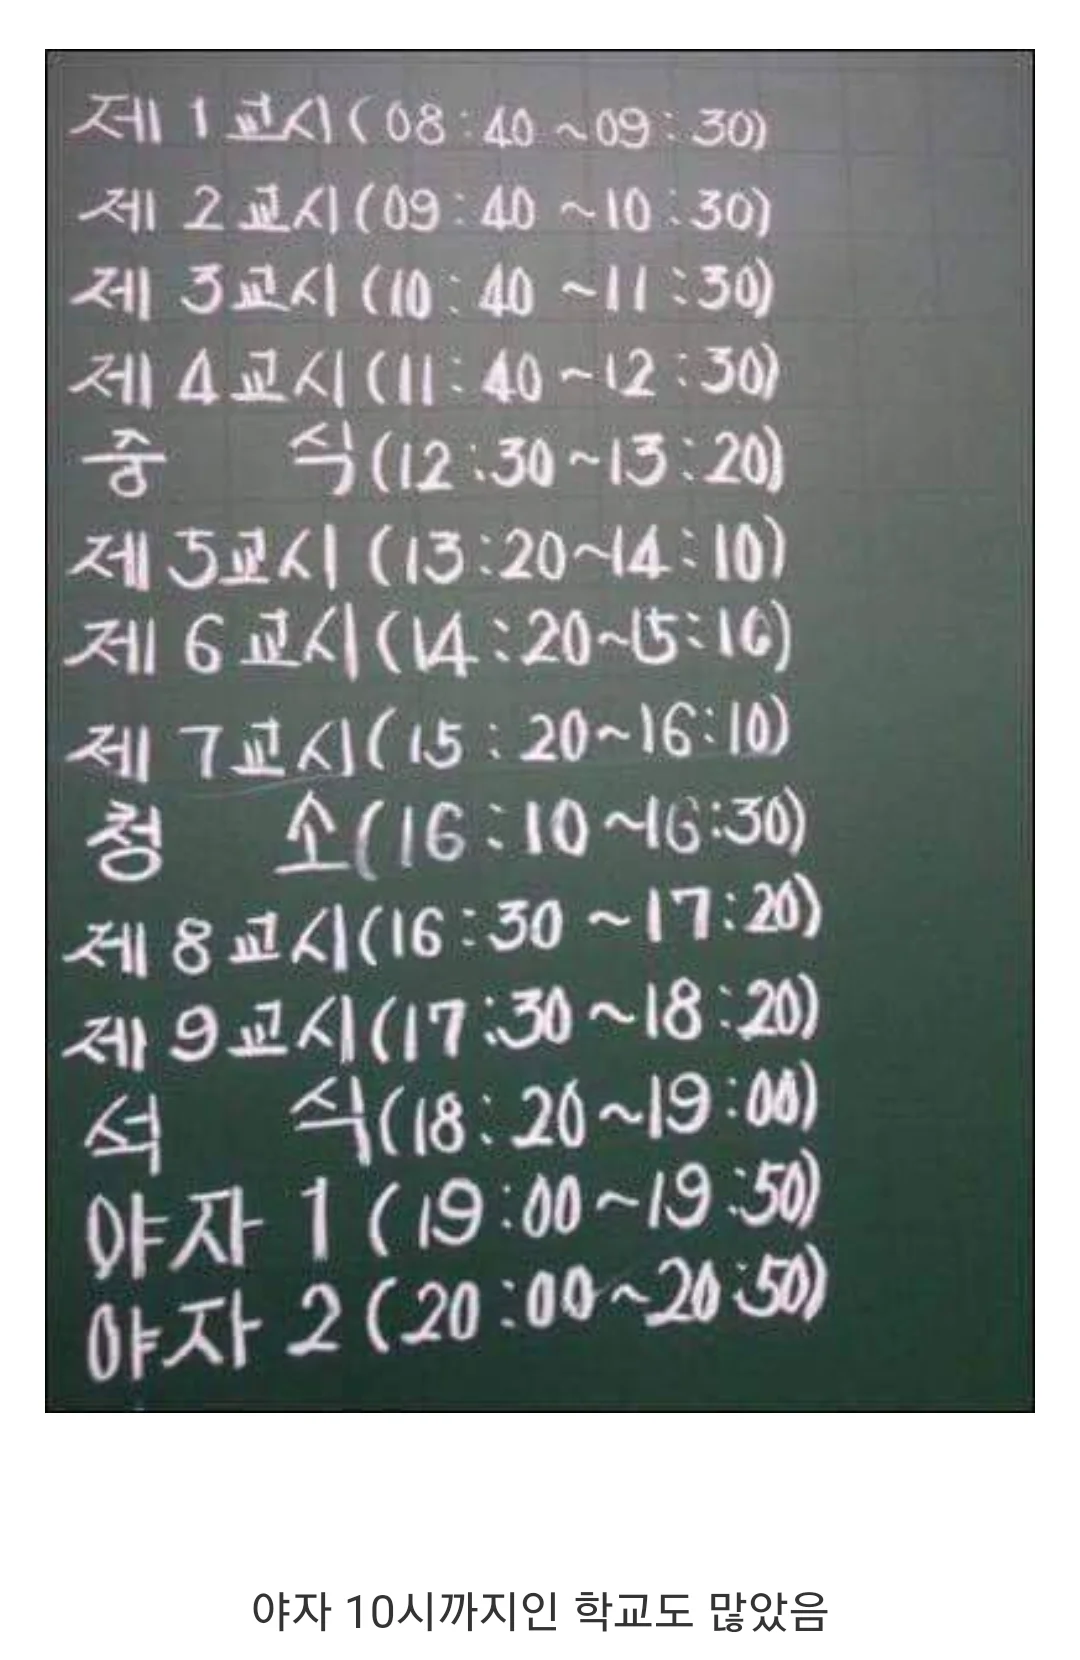 제 1교시(08:40~09:30)
제 2교시(09:40~10:30)
제 3교시(10:40~11:30)
제 4교시(11:40~12:30)
중 식(12:30~13:20)
제 5교시(13:20~14:10)
제 6교시(14:20~15:10)
제 7교시(15:20~16:10)
청 소(16:10~16:30)
제 8교시(16:30~17:20)
제 9교시(17:30~18:20)
석 식(18:20~19:00)
야자 1(19:00~19:50)
야자 2(20:00~20:50)
야자 10시까지인 학교도 많았음